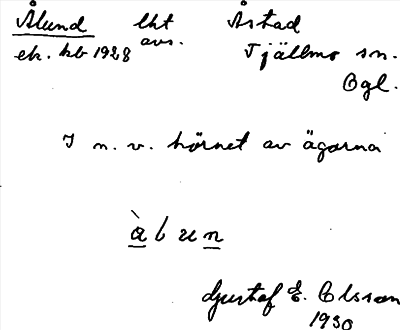 Ålund lht Åstad
avs.
ek. kb 1928 Tjällmo sn.
Ögl.
I n. v. hörnet av ägorna
à l u n
Gustaf E. Olsson
1930